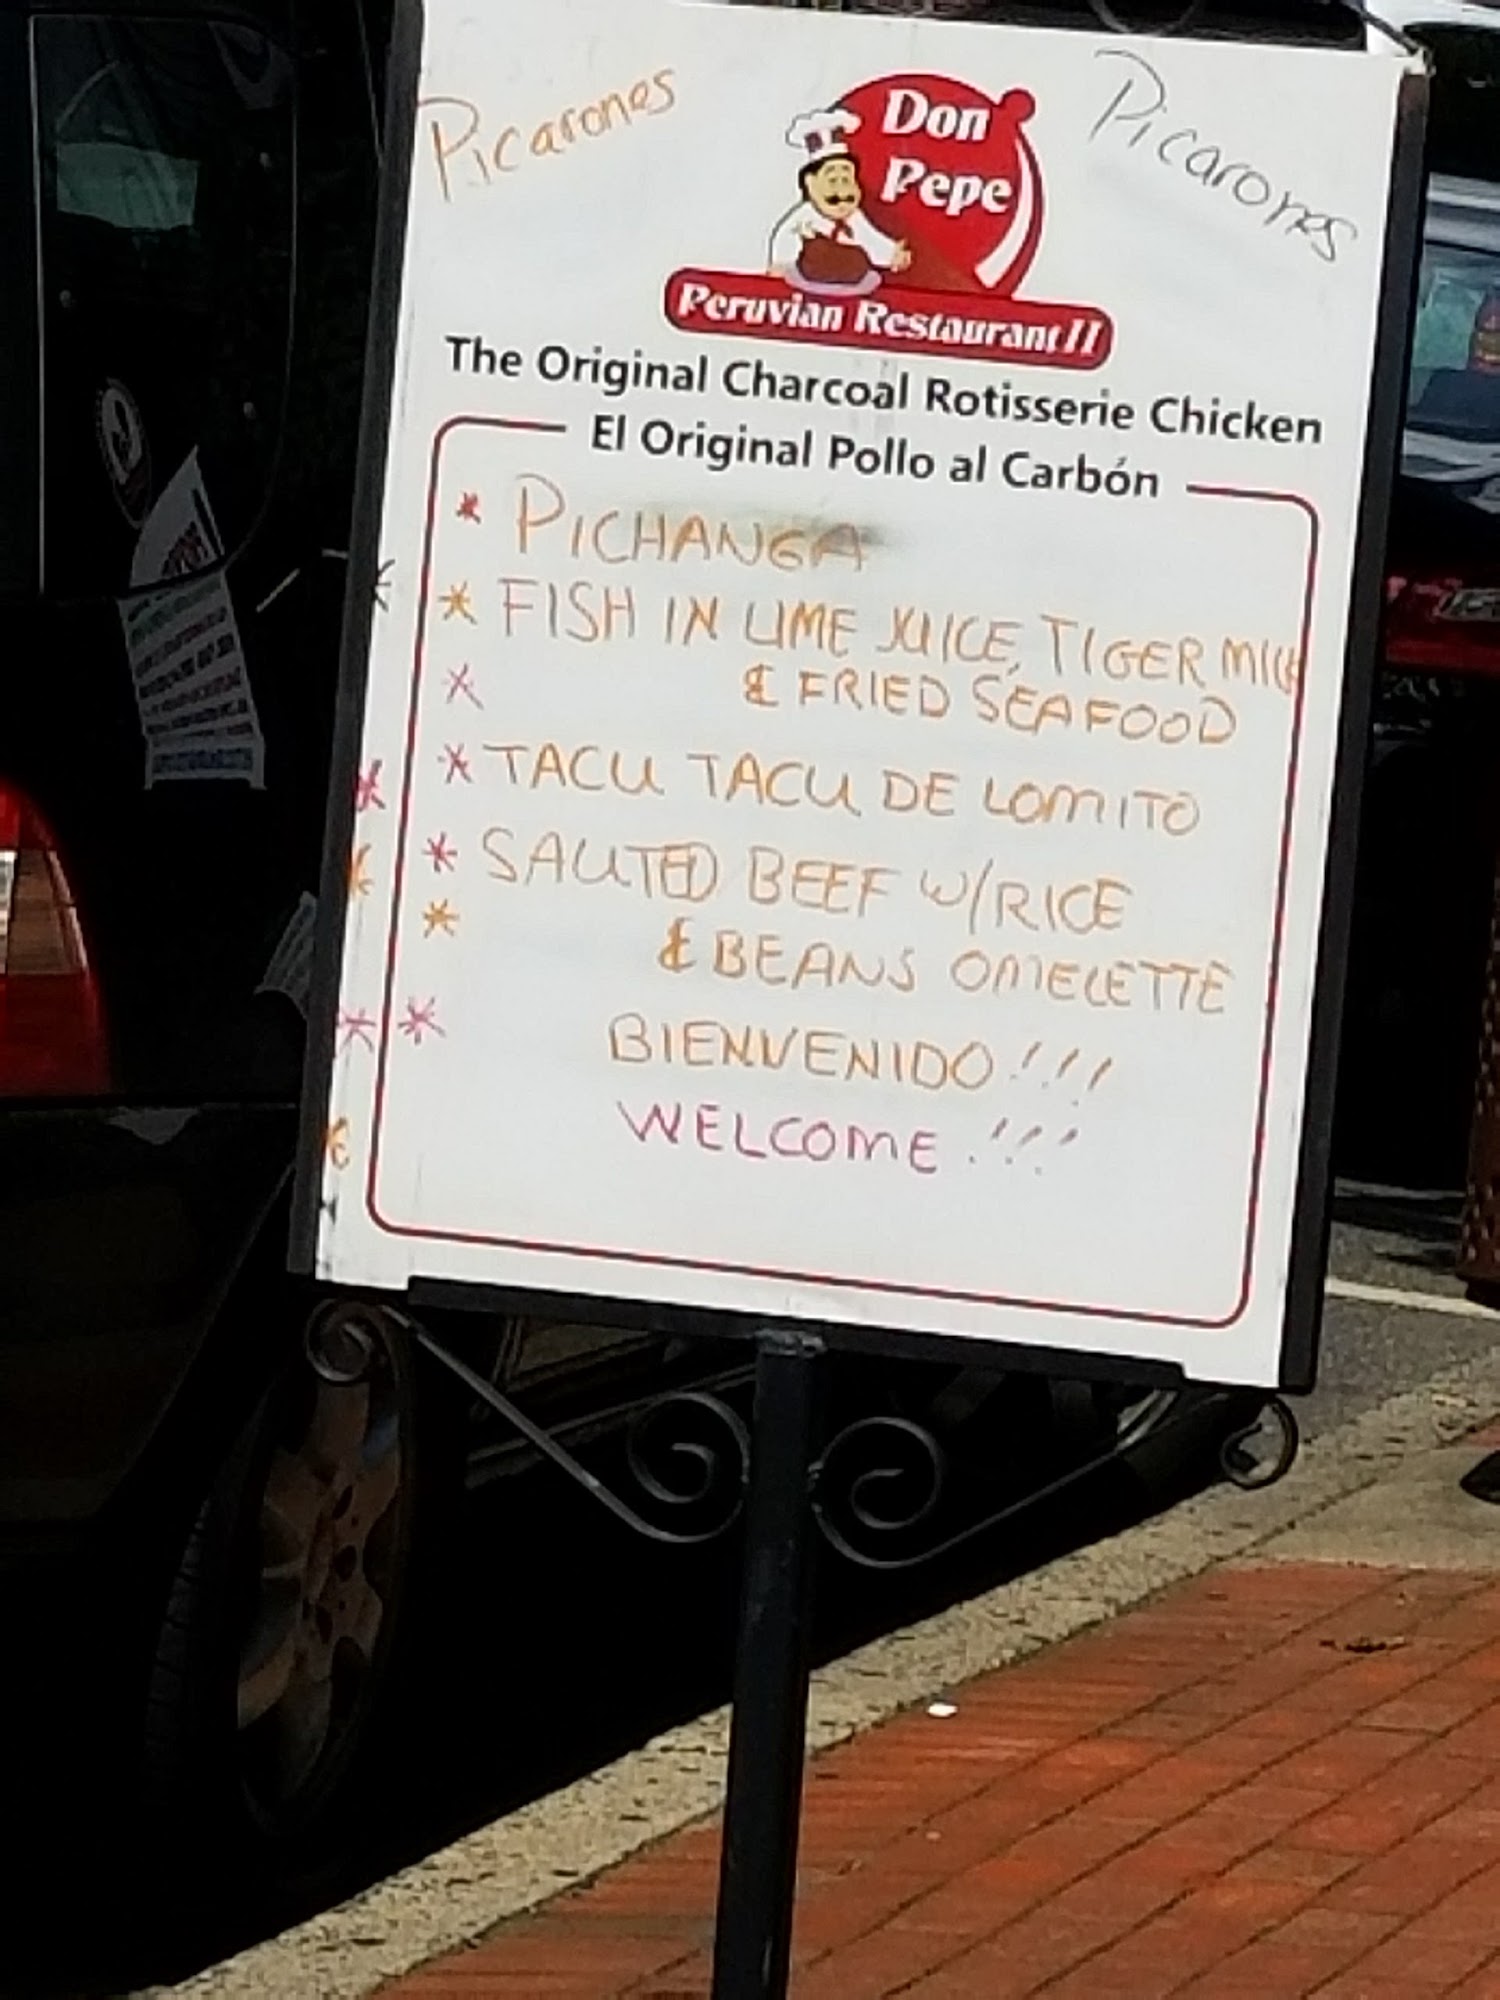 Picarones
Don
Pepe
Picarones
Peruvian Restaurant II
The Original Charcoal Rotisserie Chicken
El Original Pollo al Carbón
* PICHANGA
* FISH IN LIME JUICE, TIGER MILK
& FRIED SEAFOOD
* TACU TACU DE LOMITO
* SAUTED BEEF W/RICE
& BEANS OMELETTE
BIENVENIDO!!!
WELCOME!!!